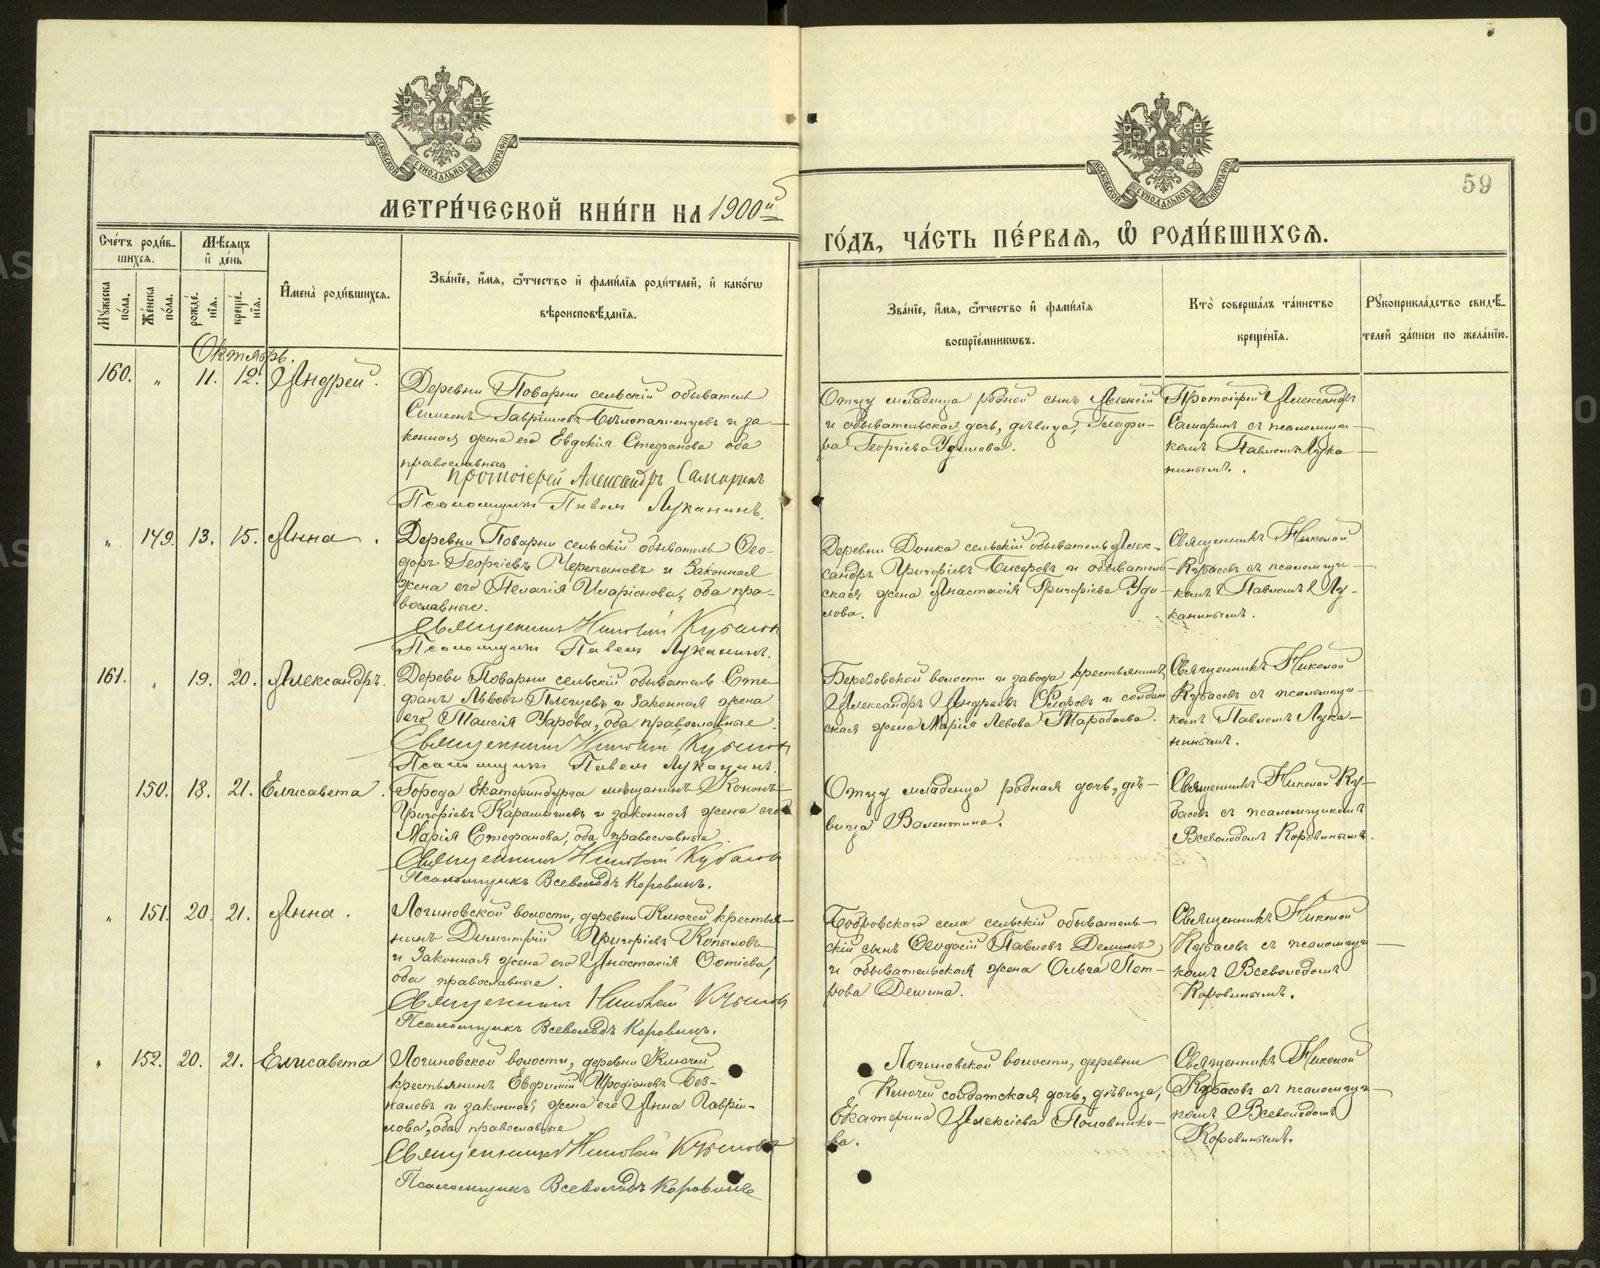 МЕТРИ́ЧЕСКОЙ КНИ́ГИ НА 1900й
ГО́ДЪ, ЧА́СТЬ ПЕ́РВАЯ, Ѡ РОДИ́ВШИХСЯ.
59
МОСКОВСКОЙ СѴНОДАЛЬНОЙ ТИПОГРАФІИ
МОСКОВСКОЙ СѴНОДАЛЬНОЙ ТИПОГРАФІИ
Сче́тъ роди́в-
шихся.
Мѣсяцъ
и де́нь
Мꙋ́жеска по́ла.
Же́нска по́ла.
рожде́нїя.
креще́нїя.
Имена̀ роди́вшихся.
Зва́нїе, и́мя, ѻ҆́тчество и фами́лїя роди́телей, и како́гѡ
вѣроисповѣ́данїя.
Зва́нїе, и́мя, ѻ҆́тчество и фами́лїя
воспрїе́мникѡвъ.
Кто̀ соверша́лъ та́инство
креще́нїя.
Рꙋкоприкла́дство свидѣ́-
телей за́писи по жела́нїю.
Октябрь.
160. „ 11. 12. Андрей.
Деревни Поварни сельскій обыватель
Симеонъ Гавріиловъ Бѣлопашенцевъ и за-
конная жена его Евдокія Стефанова оба
православные
протоіерей Александръ Самаринъ
Псаломщикъ Павелъ Луканинъ.
Отцу младенца родной сынъ Алексій
и обывательская дочь, дѣвица, Глафи-
ра Георгіева Удилова.
Протоіерей Александръ
Самаринъ съ псаломщи-
комъ Павломъ Лука-
нинымъ.
„ 149. 13. 15. Анна.
Деревни Поварни сельскій обыватель Ѳео-
доръ Георгіевъ Черепановъ и законная
жена его Пелагія Иларіонова, оба пра-
вославные.
Священникъ Николай Кубасовъ
Псаломщикъ Павелъ Луканинъ.
Деревни Донка сельскій обыватель Алек-
сандръ Григоріевъ Бисеровъ и обыватель-
ская жена Анастасія Григоріева Уди-
лова.
Священникъ Николай
Кубасовъ съ псаломщи-
комъ Павломъ Лу-
канинымъ.
161. „ 19. 20. Александръ.
Деревни Поварни сельскій обыватель Сте-
фанъ Львовъ Плетневъ и законная жена
его Таисія Уарова, оба православные
Священникъ Николай Кубасовъ
Псаломщикъ Павелъ Луканинъ.
Березовской волости и завода крестьянинъ
Александръ Андреевъ Сидоровъ и солдат
ская жена Марія Левова Тарабаева.
Священникъ Николай
Кубасовъ съ псаломщи-
комъ Павломъ Лука-
нинымъ.
150. 18. 21. Елисавета.
Города Екатеринбурга мѣщанинъ Кононъ
Григоріевъ Карамышевъ и законная жена его
Марія Стефанова, оба православные
Священникъ Николай Кубасовъ
Псаломщикъ Всеволодъ Коровинъ.
Отцу младенца родная дочь, дѣ-
вица Валентина.
Священникъ Николай Ку-
басовъ съ псаломщикомъ
Всеволодомъ Коровинымъ.
„ 151. 20. 21. Анна.
Логиновской волости, деревни Ключей крестья-
нинъ Димитрій Григоріевъ Копыловъ
и законная жена его Анастасія Фотіева,
оба православные.
Священникъ Николай Кубасовъ
Псаломщикъ Всеволодъ Коровинъ.
Бобровскаго села сельскій обыватель-
скій сынъ Ѳеодосій Павловъ Деминъ
и обывательская жена Ольга Пет-
рова Демина.
Священникъ Николай
Кубасовъ съ псаломщи-
комъ Всеволодомъ
Коровинымъ.
„ 152. 20. 21. Елисавета
Логиновской волости, деревни Ключей
крестьянинъ Евфимій Иродіоновъ Без-
наловъ и законная жена его Анна Гаврі-
лова, оба православные
Священникъ Николай Кубасовъ
Псаломщикъ Всеволодъ Коровинъ
Логиновской волости, деревни
Ключей солдатская дочь, дѣвица,
Екатерина Алексіева Половнико-
ва.
Священникъ Николай
Кубасовъ съ псаломщи-
комъ Всеволодомъ
Коровинымъ.